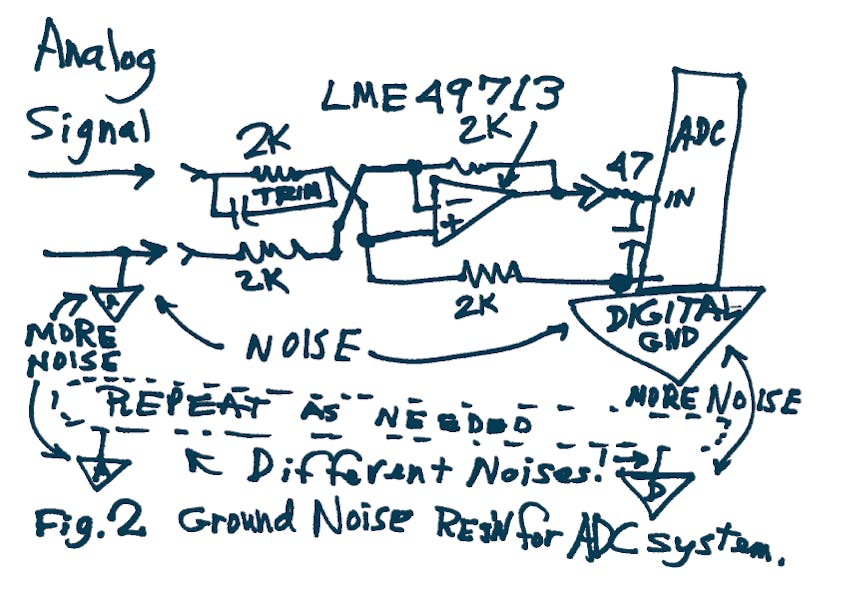 Analog
Signal
LME 49713
2K
2K
TRIM
2K
2K
47
ADC
IN
-
+
A
DIGITAL
GND
NOISE
MORE
NOISE
MORE NOISE
REPEAT AS NEEDED
A
Different Noises!
D
Fig. 2 Ground Noise REJN for ADC system.